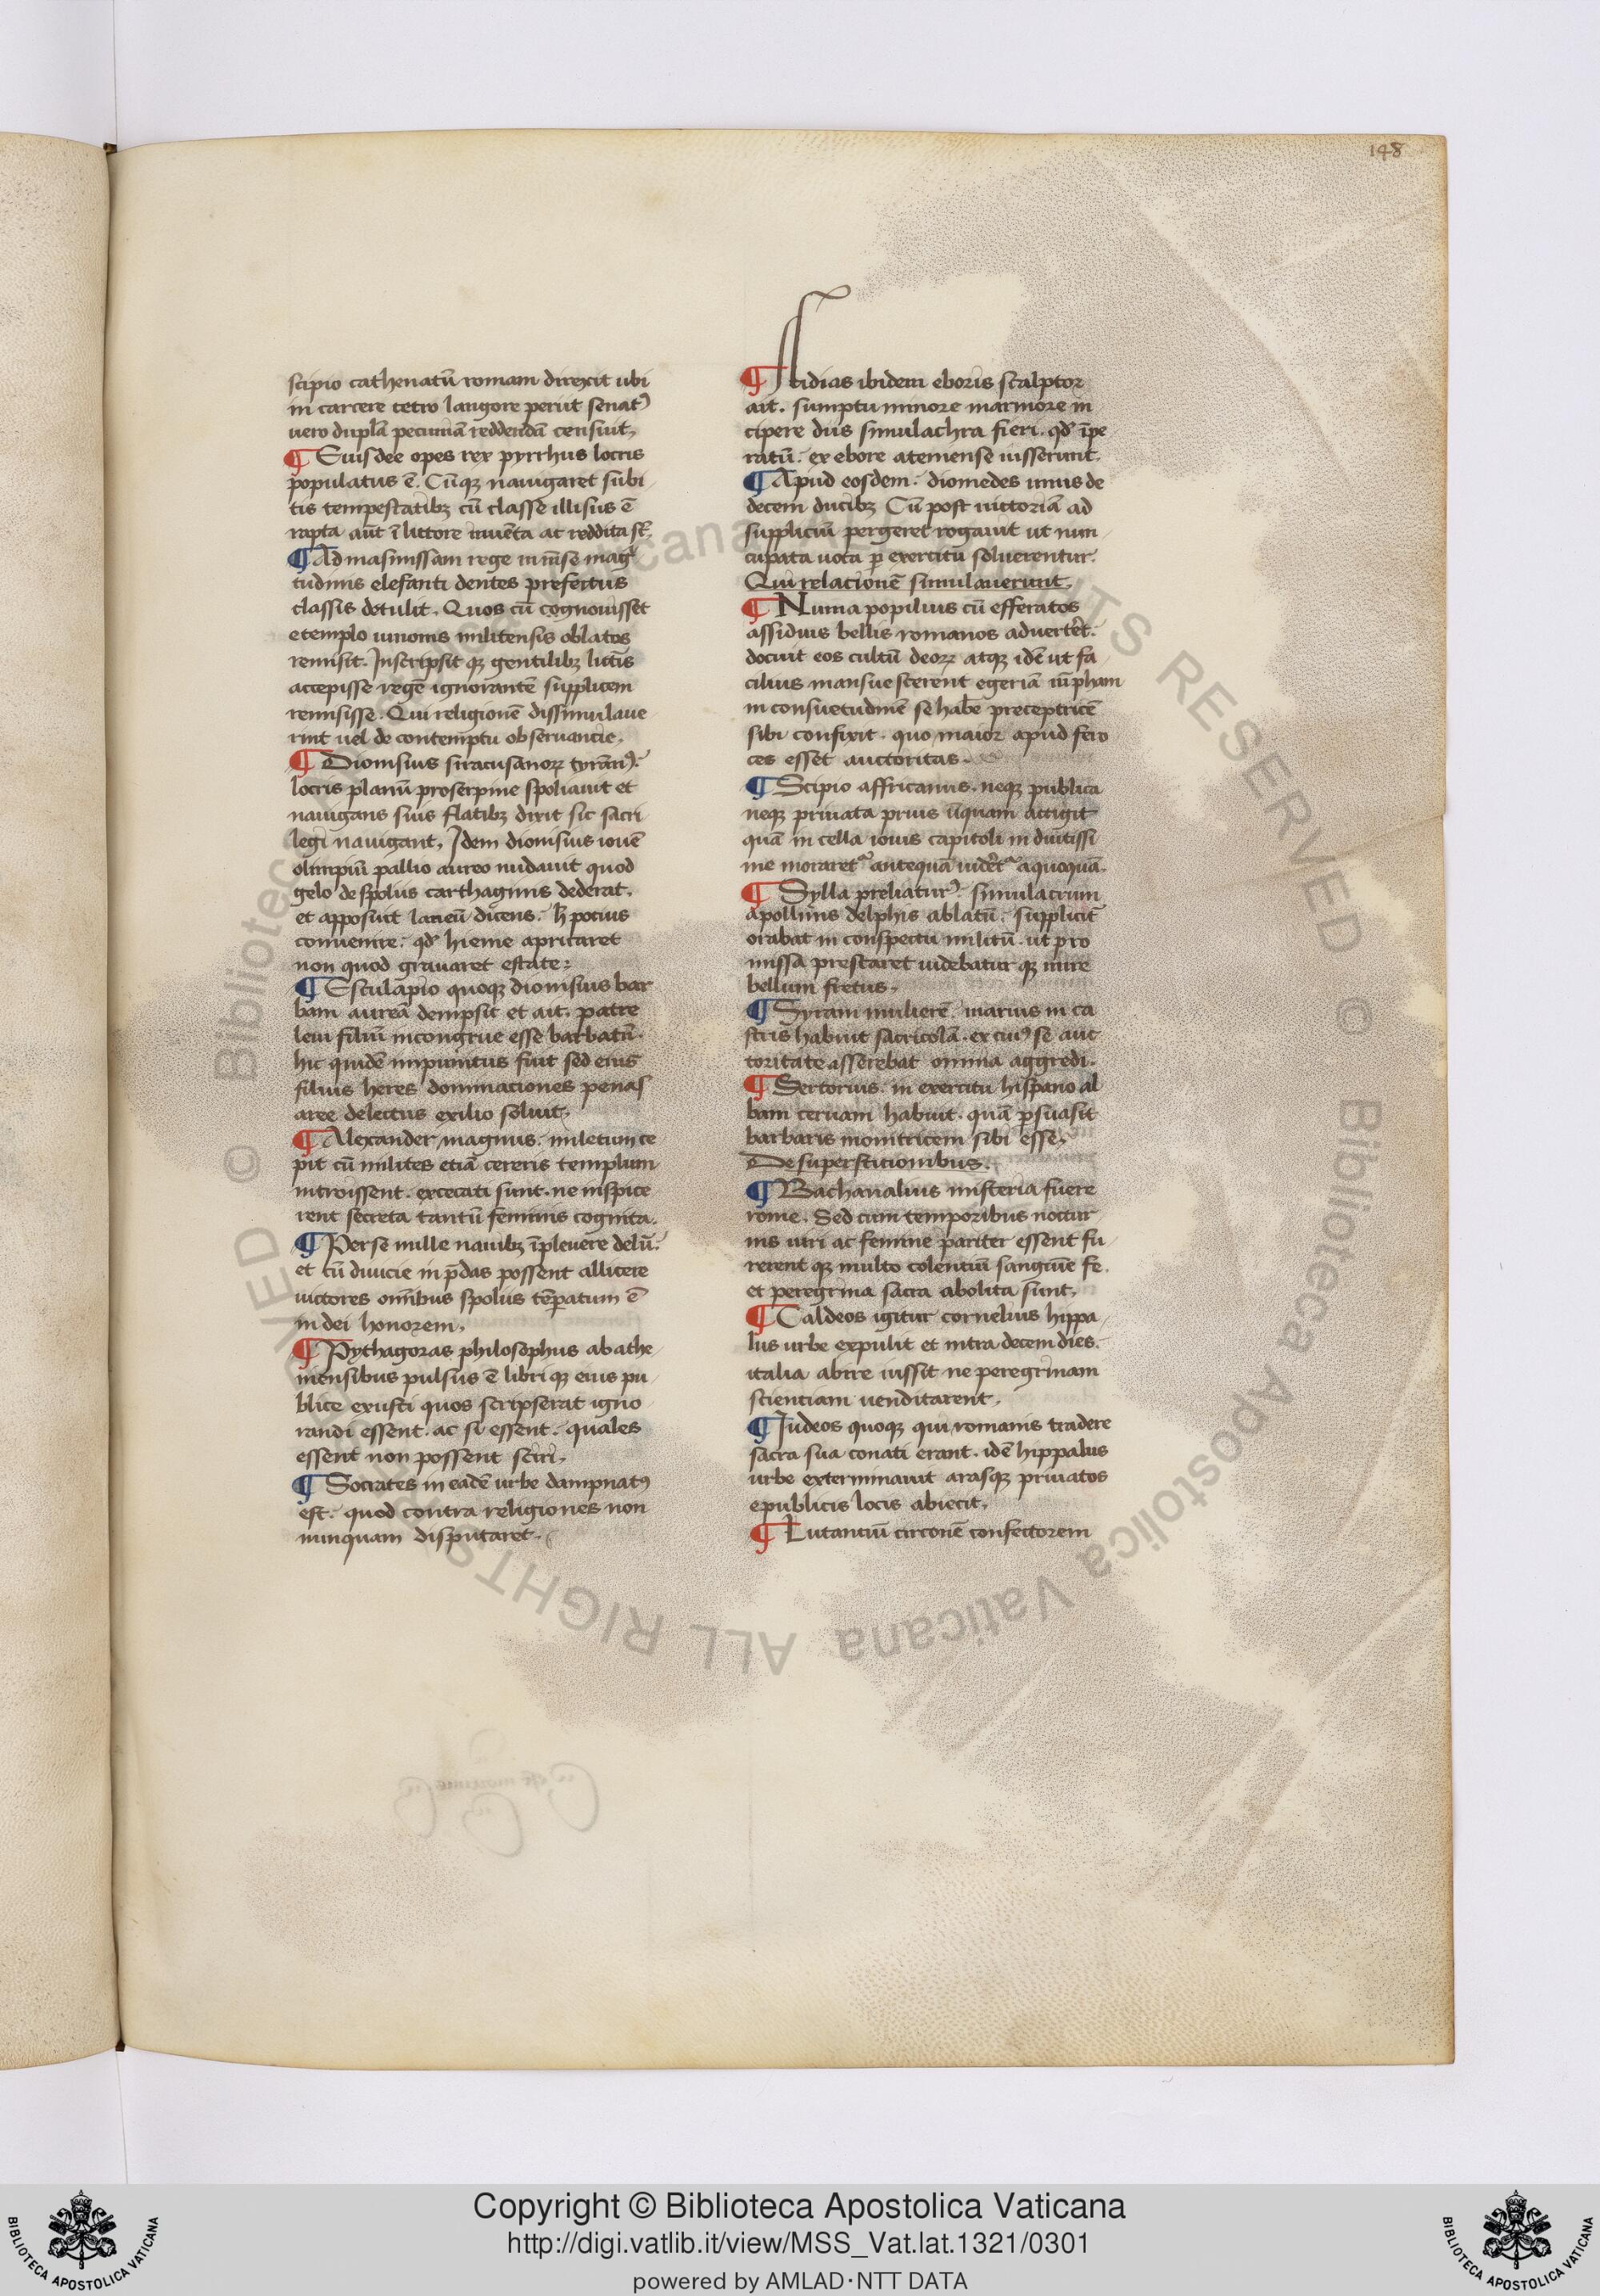 148
scipio cathenatū romam direxit ubi
in carcere tetro langore periit senatꝰ
uero duplā pecuniā reddendā censuit,
¶ Eiusdee opes rex pyrrhus locris
populatus ē. Cūqꝫ nauigaret subi
tis tempestatibꝫ cū classe illisus ē
rapta aūt ī littore inuēta ac reddita sт̄.
¶ Ad masinissam rege
tudinis elefanti dentes prefectus
classis detulit. Quos cū cognouisset
e templo iunonis militensis oblatos
remisit. Inscripsit qꝫ gentilibꝫ litt̄is
accepisse regē ignorantē supplicem
remisisse. Qui religionē dissimulaue
rint uel de contemptu obseruancie.
¶ Dionisius siracusanoꝝ tyrānꝰ.
locris planū proserpine spoliauit et
nauigans suis flatibꝫ dixit sic sacri
legi nauigant, Idem dionisius iouē
olimpiū pallio aureo nudauit quod
gelo de spolus carthaginis dederat.
et apposuit laneū dicens. h̄ pocius
conuenire. qd̄ hieme apricaret
non quod grauaret estate:
¶ Esculapio quoqꝫ dionisius bar
bam aureā dempsit et ait. patre
leui filiū incongrue esse barbatū.
hic quidē impunitus fuit sed eius
filius heres dominaciones penas
aree delectus exilio soluit.
¶ Alexander magnus. miletum ce
pit cū milites etiā cereris templum
introissent. excecati sunt. ne inspice
rent secreta tantū feminis cognita.
¶ Perse mille nauibꝫ īpleuere delū.
et cū diuicie in p̄das possent allicere
uictores om̄ibus spolus tēpatum ē
in dei honorem,
¶ Pythagoras philosophus ab athe
niensibus pulsus ē libri qꝫ eius pu
blice exusti quos scripserat igno
randi essent. ac si essent. quales
essent non possent sciri,
¶ Socrates in eadē urbe dampnatꝰ
est. quod contra religiones non
nunquam disputaret.
¶ Abidias ibidem eboris scalptor
ait. sumptu minore marmore in
cipere diis simulachra fieri. qd̄ īpe
ratū. ex ebore ateniense iusserunt.
¶ Apud eosdem. diomedes unus de
decem ducibꝫ Cū post uictoriā ad
suppliciū pergeret rogauit ut nun
cupata uota p̲ exercitū soluerentur.
Qui relacionē simulauerunt,
¶ Numa popilius cū efferatos
assiduis bellis romanos aduertēt.
docuit eos cultū deoꝝ atqꝫ idē ut fa
cilius mansuescerent egeriā nīpham
in consuetudinē se habē preceptricē
sibi confixit. quo maior apud fero
ces esset auctoritas.
¶ Scipio affricanus. neqꝫ publica
neqꝫ priuata prius ūquam attigit
quā in cella iouis capitoli in diutissi
me moraretᷣ antequā uidētᷣ a quoquā.
¶ Sylla preliaturꝰ. simulacrum
apollinis delphis ablatū. supplicit̄
orabat in conspectu militū. ut pro
missa prestaret uidebatur qꝫ inire
bellum fretus,
¶ Syram mulierē. marius in ca
stris habuit sacricolā. ex cuiꝰ se auc
toritate asserebat omnia aggredi.
¶ Sertorius. in exercitu hispano al
bam ceruam habuit. quā p̲suasit
barbaris monitricem sibi esse,
De superstitionibus.
¶ Bachanalius misteria fuere
rome. Sed cum temporibus noctur
nis uiri ac femine pariter essent fu
rerent qꝫ multo colentiū sanguīe fe.
et peregrina sacra abolita sunt,
¶ Caldeos igitur cornelius hippa
lus urbe expulit et intra decem dies.
italia abire iussit ne peregrinam
scientiam uenditarent,
¶ Iudeos quoqꝫ qui romanis tradere
sacra sua conati erant. idē hippalus
urbe exterminauit arasqꝫ priuatos
e publicis locis abiecit,
¶ Lutantiū circonē confectorem
Copyright © Biblioteca Apostolica Vaticana
http://digi.vatlib.it/view/MSS_Vat.lat.1321/0301
powered by AMLAD·NTT DATA
BIBLIOTECA APOSTOLICA VATICANA
BIBLIOTECA APOSTOLICA VATICANA
© Biblioteca Apostolica Vaticana ALL RIGHTS RESERVED